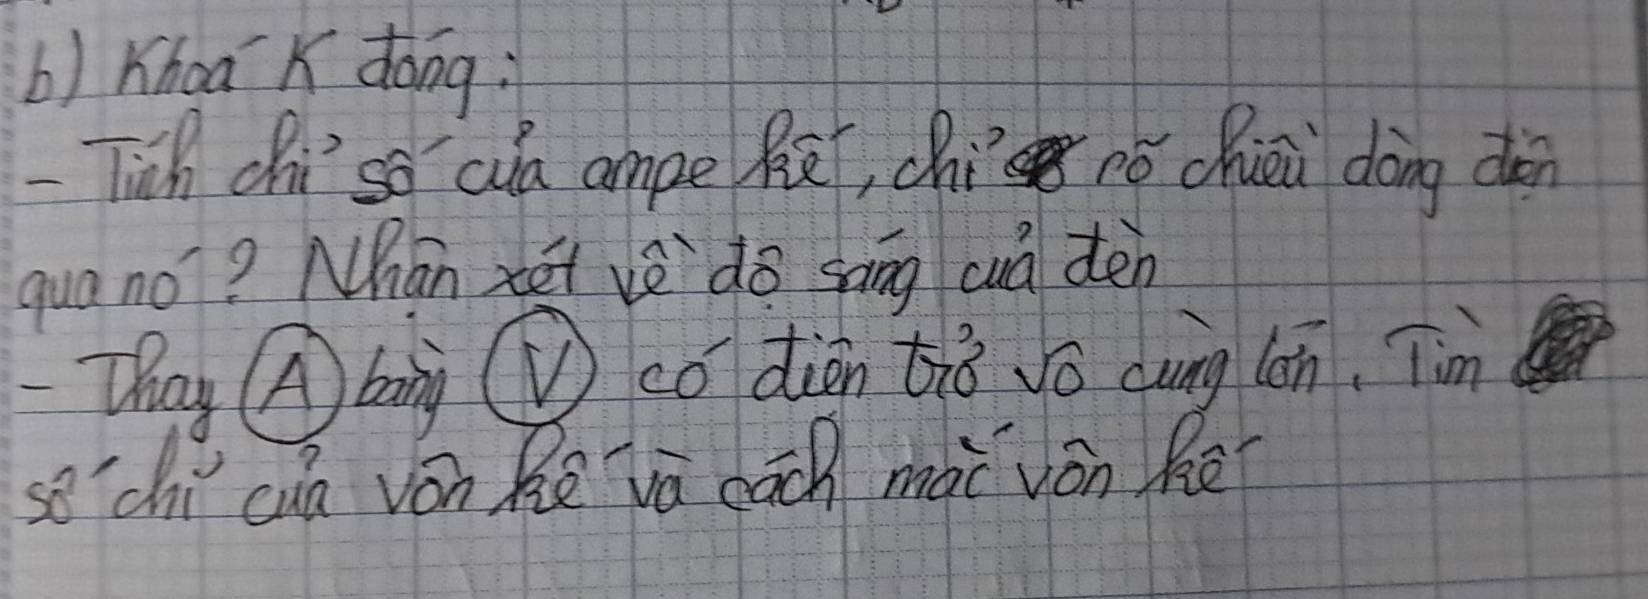 b) Khoá K đóng:
- Tính chỉ số của ampe kế, chỉ rõ chiều dòng điện
qua nó? Nhận xét về độ sáng của đèn
- Thay (A) bằng (V) có điện trở vô cùng lớn. Tìm
số chỉ của vôn kế và cách mắc vôn kế